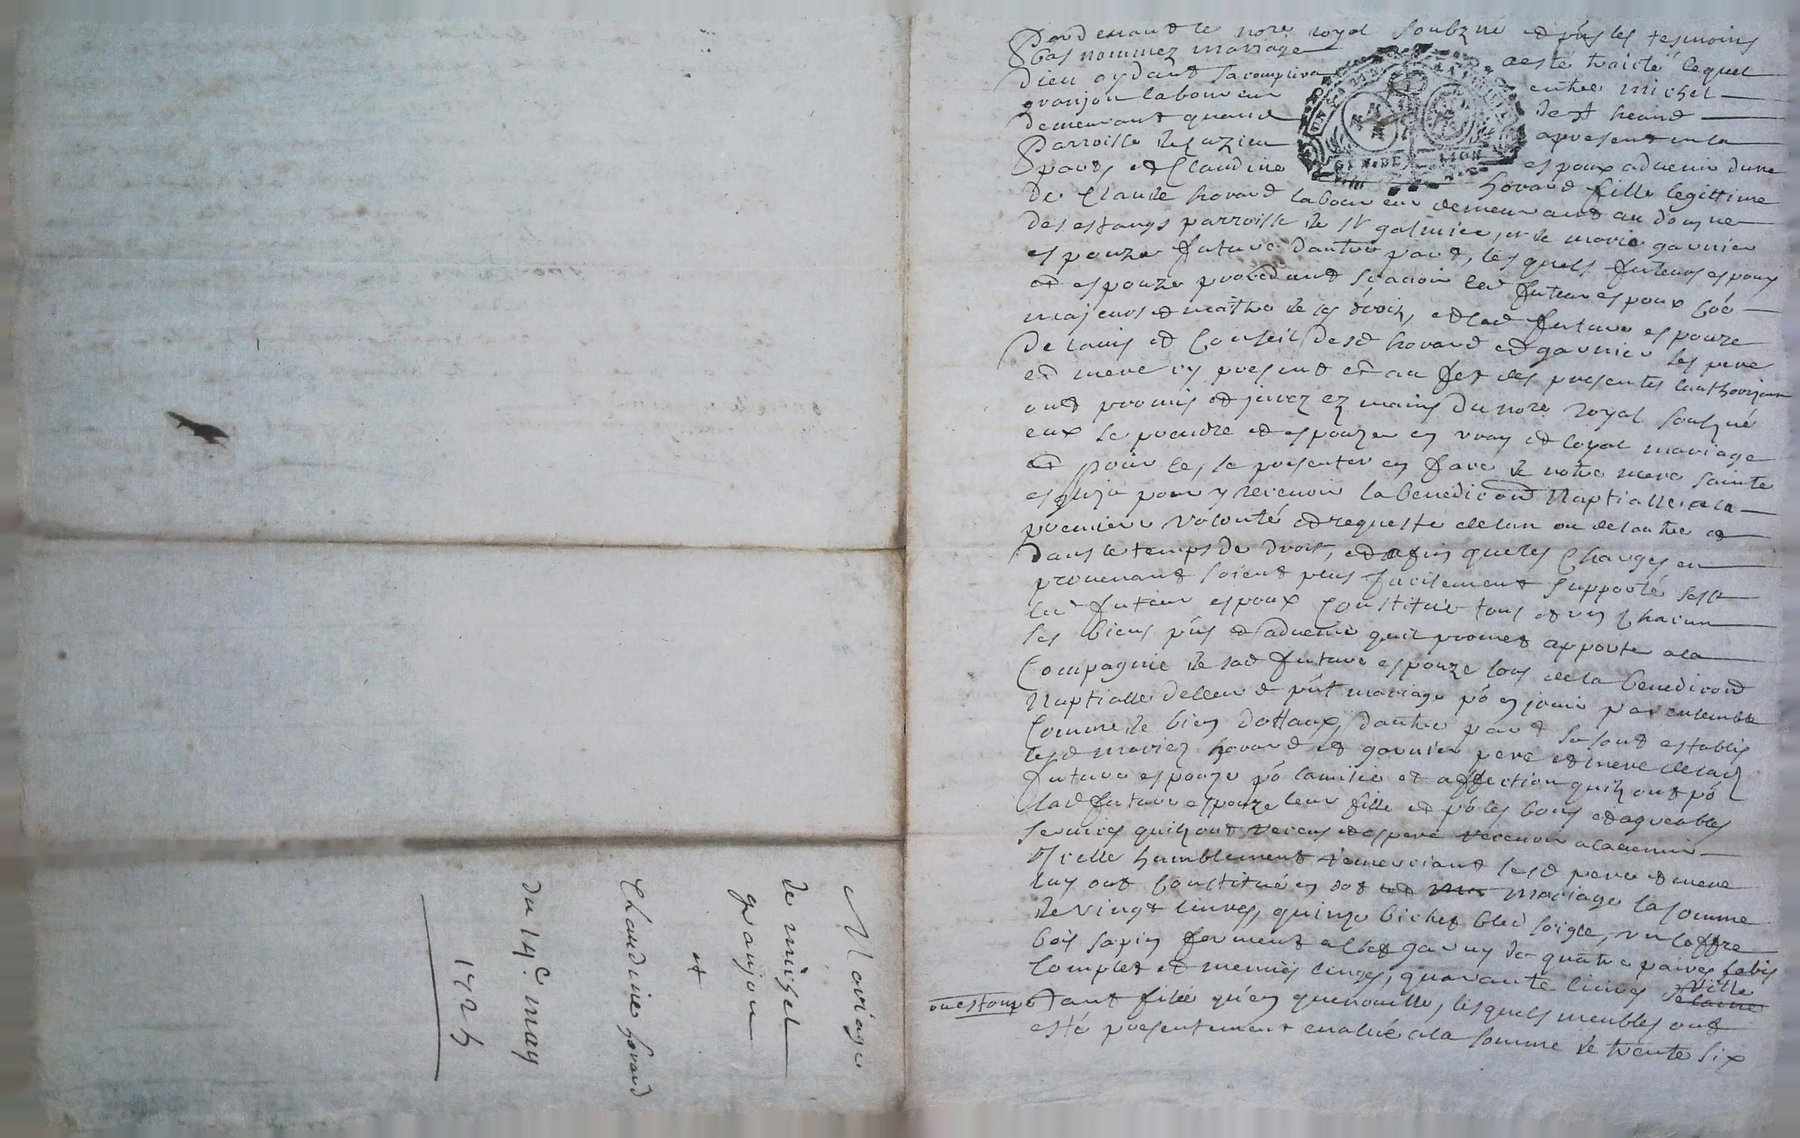 Mariage
de michel
granjon
et
Claudine hovard
du 14e. may
1725
Pardevant le nore. royal soubzné et pñs les tesmoins
bas nommez mariage a esté traicté lequel
dieu aydant sacomplira entre michel
granjon laboureur de st heand
demeurant apresent en la
Parroisse espoux advenir dune
part, et Claudine hovard fille legittime
de Claude hovard laboureur demeurant au
des estangs parroisse de st galmier, et de marie garnier
espouze future dautre part, lesquels futeurs espoux
et espouze procedant scavoir led futeur espoux coe
majeurs et maitre de ses droits, et lad future espouze
de lavis et Conseil desd hovard et garnier ses pere
et mere icy present et au fet des presentes lauthorizant
ont promis et jurez ez mains du nore royal soubzné
eux se prendre et espouzer en vray et loyal mariage
et pour ce, se presenter en face de notre mere sainte
esglize pour y recevoir la benediction Nuptialle a la
premiere volonté et requeste de lun ou de lautre et
dans le temps de droit, et afin que les Charges en
provenant soient plus facilement supporté sest
led futeur espoux Constitué tous et un Chacun
ses biens pñs et advenir quil promet apporter a la
Compagnie de sad future espouze lors de la benediction
Nuptialle de leurd pñt mariage po en jouir par ensemble
Comme de bien dottaux, dautre part se sont establis
lesd mariez hovard et garnier pere et mere de lad
future espouze po lamitié et affection quilz ont po
lad future espouze leur fille et po les bons et agreables
services quilz ont receus et espere recevoir a ladvenir
dicelle humblement remerciant lesd pere et mere
luy ont Constitué en dot et mariage la somme
de vingt livres, quinze bichet bled soigle, un coffre
bois sapin ferment a clef garny de quatre paires habis
Complet et menus linges, quarante livres
ou estoupe tant filée quen quenouille, lesquels meubles ont
esté presentement evalué a la somme de trente six